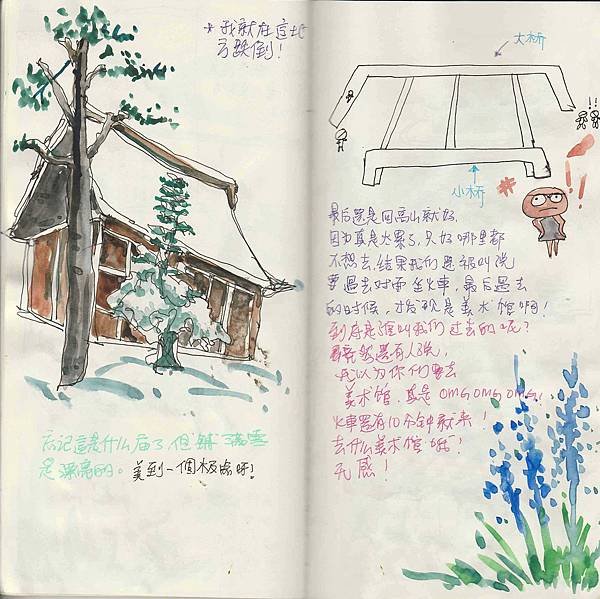 *我就在這地
方跌倒!
忘记這是什么庙了,但铺满雪
是漂亮的。美到一個极点呀!
大桥
小桥
!!
最后還是回高山就好.
因为真是太累了,只好哪里都
不想去,结果我们是被叫说
要過去对面坐火車,最后過去
的时候,才发现是美术馆啊!
到底是谁叫我们过去的呢?
竟然還有人说,
我以为你们要去
美术馆,真是 OMG OMG OMG,
火車還有10个钟就来!
去什么美术馆哦!
无感!